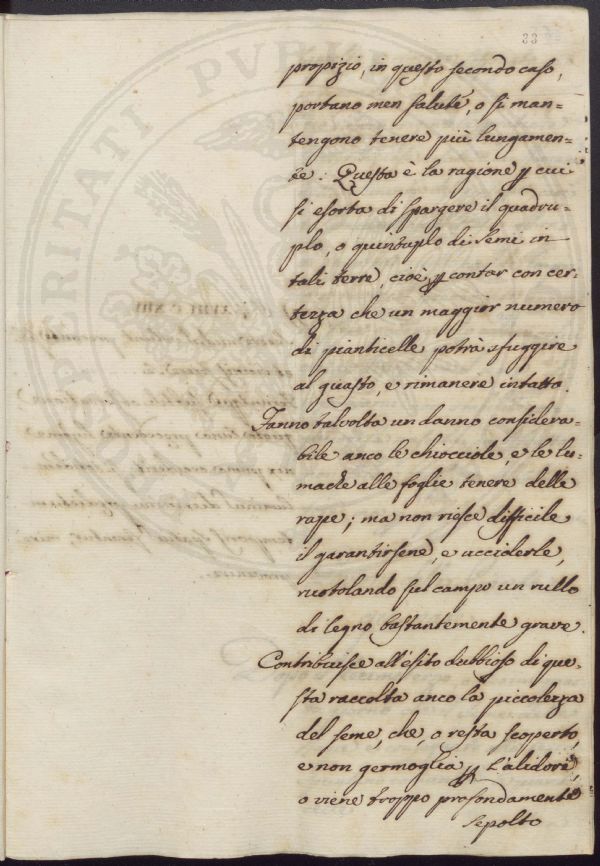 33
propizio, in questo secondo caso,
portano men salute, o si man=
tengono tenere più lungamen=
te. Questa è la ragione p cui
si esorta di spargere il quadru=
plo, o quintuplo di semi in
tali terre, cioè, p contar con cer=
tezza che un maggior numero
di pianticelle potrà sfuggire
al guasto, e rimanere intatto.
Fanno talvolta un danno considera=
bile anco le chiocciole, e le lu=
mache alle foglie tenere delle
rape; ma non riesce difficile
il garantirsene, e ucciderle,
ruotolando sul campo un rullo
di legno bastantemente grave.
Contribuisce all'esito dubbioso di que=
sta raccolta anco la piccolezza
del seme, che, o resta scoperto,
e non germoglia p l'alidore,
o viene troppo profondamente
sepolto